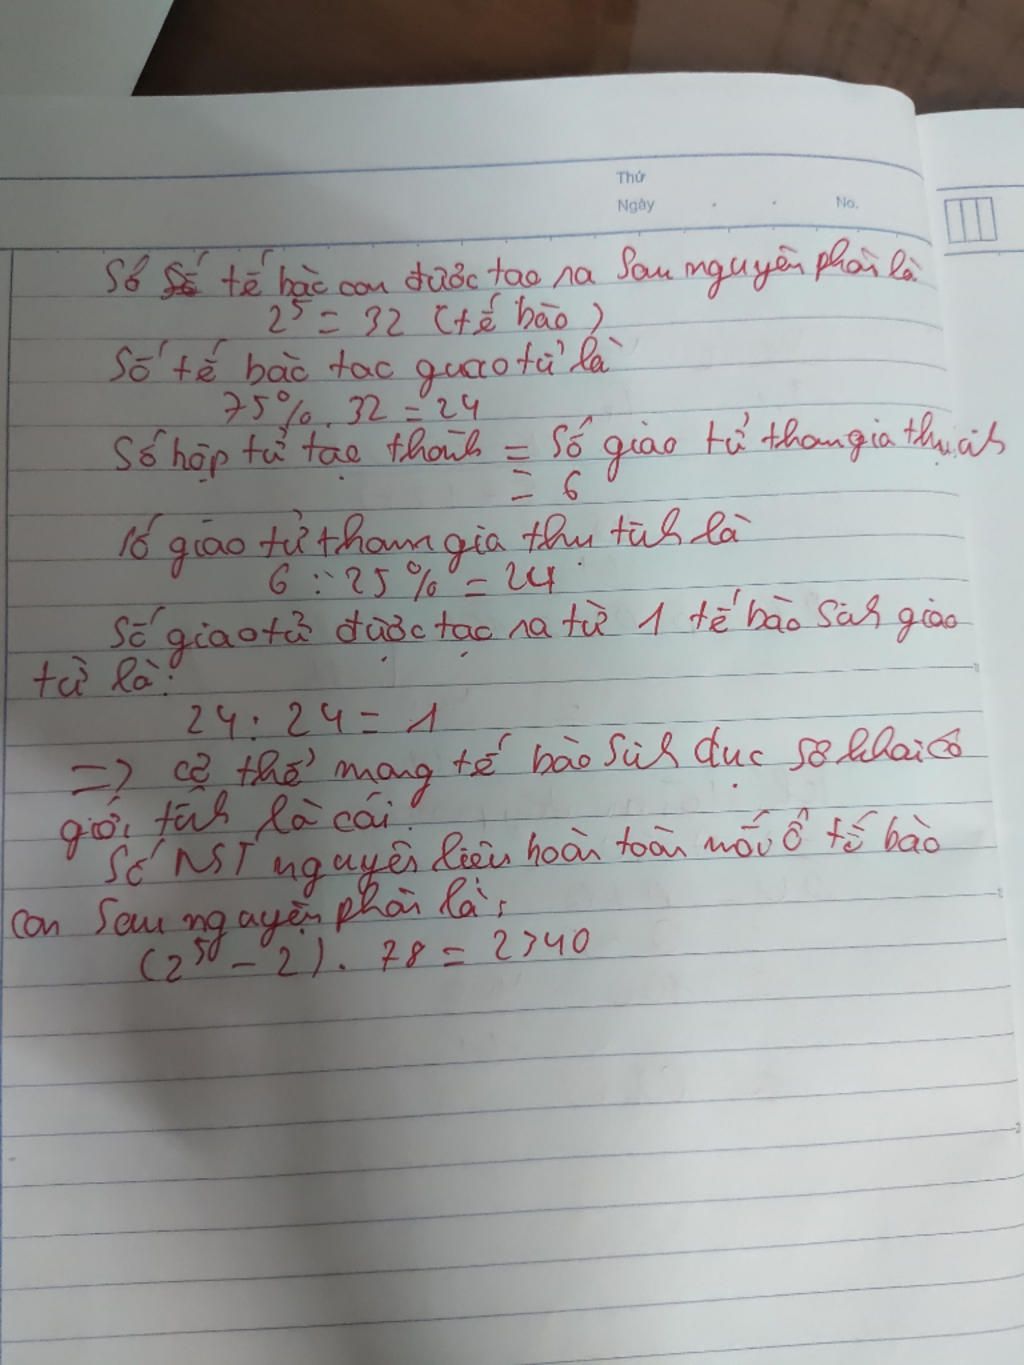 Thứ
Ngày . . No.
Số tế bào con được tạo ra sau nguyên phân là
2⁵ = 32 (tế bào)
Số tế bào tạo giao tử là
75%. 32 = 24
Số hợp tử tạo thành = Số giao tử tham gia thụ tinh
= 6
Số giao tử tham gia thụ tinh là
6 : 25% = 24
Số giao tử được tạo ra từ 1 tế bào sinh giao
tử là:
24 : 24 = 1
=> cơ thể mang tế bào sinh dục sơ khai có
giới tính là cái.
Số NST nguyên liệu hoàn toàn mới ở tế bào
con sau nguyên phân là:
(2⁵ - 2). 78 = 2340